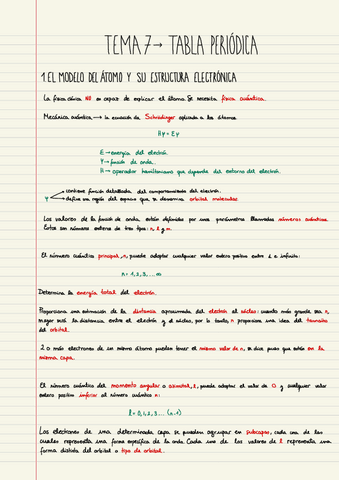 TEMA 7 → TABLA PERIÓDICA
1. EL MODELO DEL ÁTOMO Y SU ESTRUCTURA ELECTRÓNICA
La física clásica NO es capaz de explicar el átomo. Se necesita física cuántica.
Mecánica cuántica → la ecuación de Schrödinger aplicada a los átomos.
Hψ = Eψ
E → energía del electrón.
Ψ → función de onda.
H → operador hamiltoniano que depende del entorno del electrón.
contiene función detallada del comportamiento del electrón.
Ψ define una región del espacio que se denomina orbital molecular
Los valores de la función de onda están definidos por unos parámetros llamados números cuánticos.
Estos son números enteros de tres tipos: n, l y m.
El número cuántico principal, n, puede adoptar cualquier valor entero positivo entre 1 e infinito:
n = 1, 2, 3, ... ∞
Determina la energía total del electrón.
Proporciona una estimación de la distancia aproximada del electrón al núcleo: cuanto más grande sea n,
mayor será la distancia entre el electrón y el núcleo, por lo tanto, n proporciona una idea del tamaño
del orbital.
2 o más electrones de un mismo átomo pueden tener el mismo valor de n, se dice pues que están en la
misma capa.
El número cuántico del momento angular o azimutal, l, puede adoptar el valor de 0 y cualquier valor
entero positivo inferior al número cuántico n:
l = 0, 1, 2, 3 ... (n-1)
Los electrones de una determinada capa se pueden agrupar en subcapas, cada una de las
cuales representa una forma específica de la onda. Cada uno de los valores de l representa una
forma distinta del orbital o tipo de orbital.